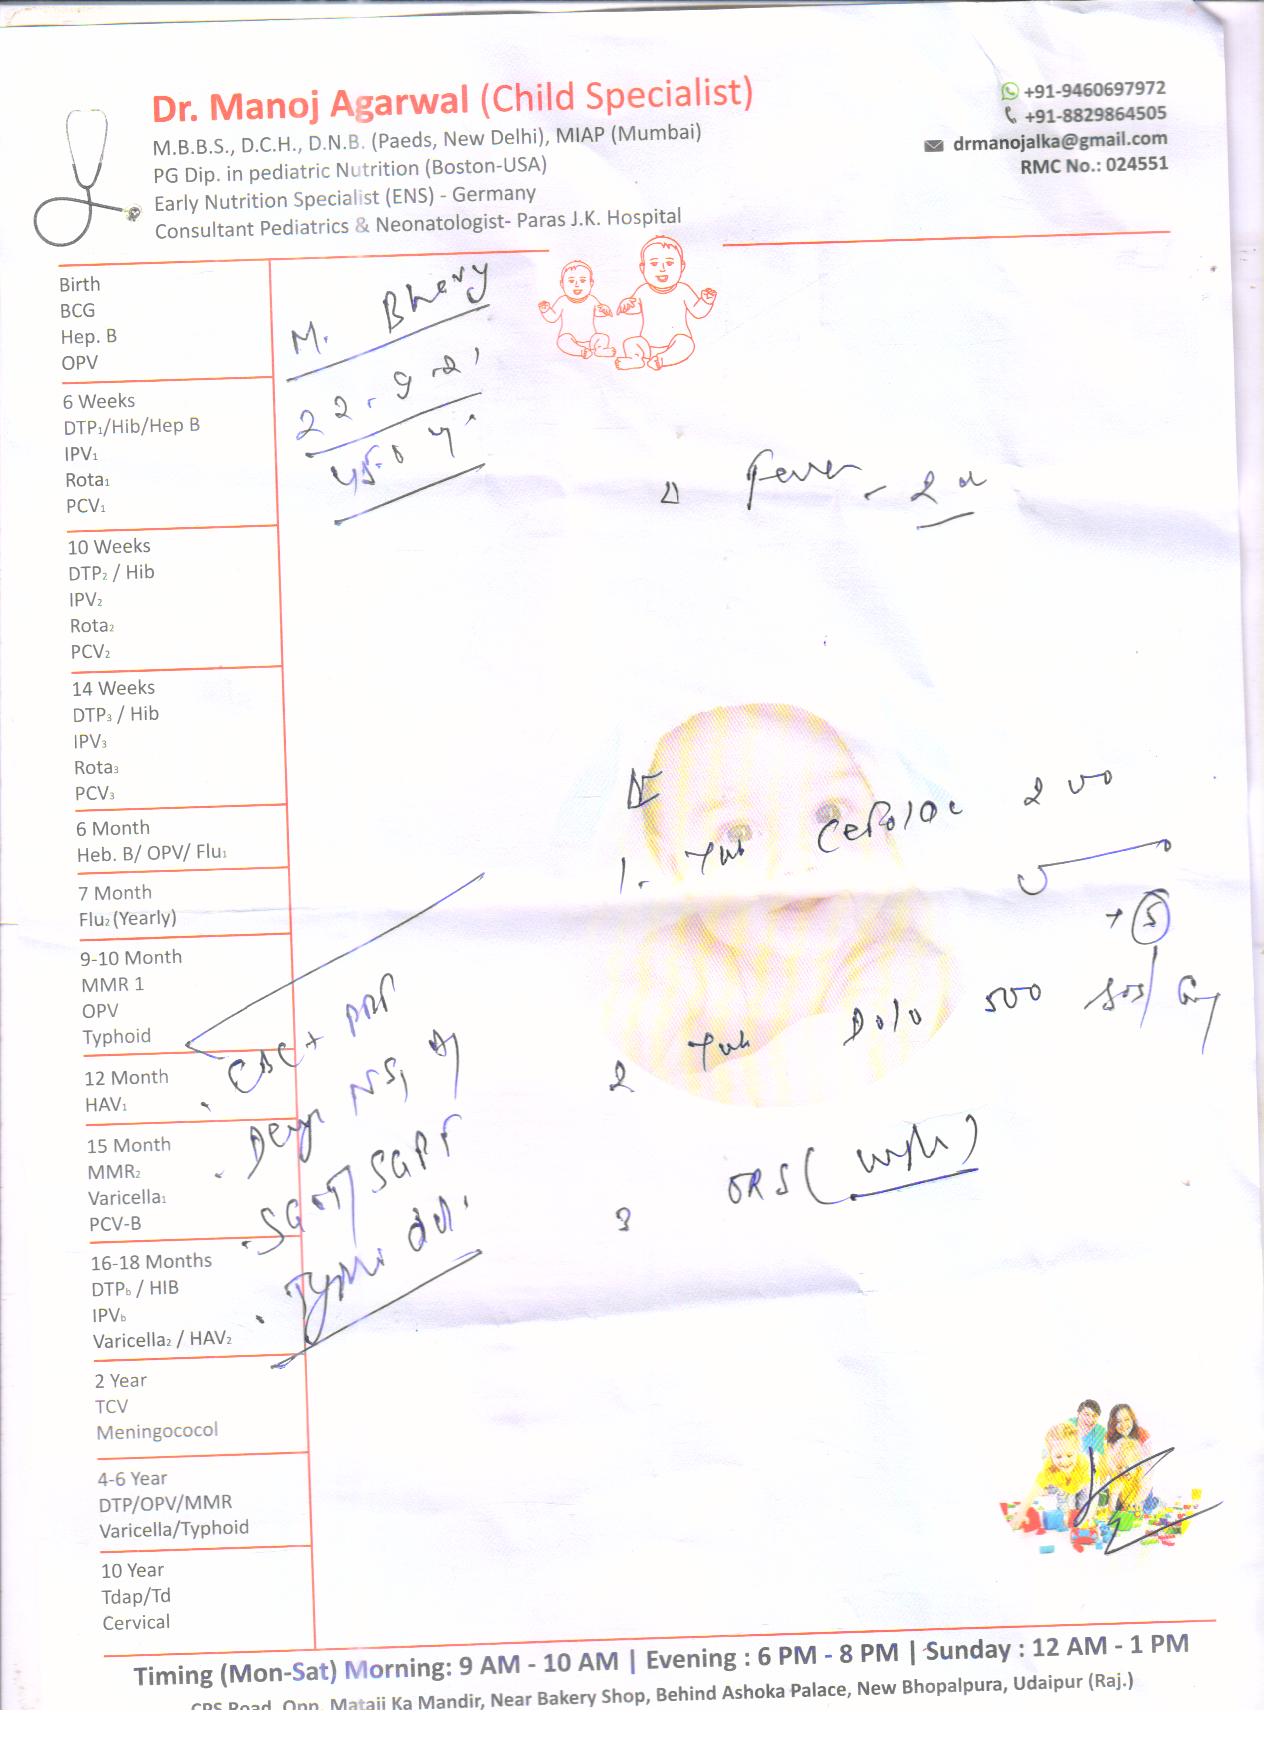 Dr. Manoj Agarwal (Child Specialist)
M.B.B.S., D.C.H., D.N.B. (Paeds, New Delhi), MIAP (Mumbai)
PG Dip. in pediatric Nutrition (Boston-USA)
Early Nutrition Specialist (ENS) - Germany
Consultant Pediatrics & Neonatologist- Paras J.K. Hospital
+91-9460697972
+91-8829864505
drmanojalka@gmail.com
RMC No.: 024551
Birth
BCG
Hep. B
OPV
6 Weeks
DTP1/Hib/Hep B
IPV1
Rota1
PCV1
10 Weeks
DTP2 / Hib
IPV2
Rota2
PCV2
14 Weeks
DTP3 / Hib
IPV3
Rota3
PCV3
6 Month
Heb. B/ OPV/ Flu1
7 Month
Flu2 (Yearly)
9-10 Month
MMR 1
OPV
Typhoid
12 Month
HAV1
15 Month
MMR2
Varicella1
PCV-B
16-18 Months
DTPb / HIB
IPVb
Varicella2 / HAV2
2 Year
TCV
Meningococol
4-6 Year
DTP/OPV/MMR
Varicella/Typhoid
10 Year
Tdap/Td
Cervical
M.
22.9.21
Fever - 2 d
1. Tab 200
5
2 Tab Dolo 500 sos/
3 ORS
CBC +
NS1
SGOT/SGPT
Timing (Mon-Sat) Morning: 9 AM - 10 AM | Evening : 6 PM - 8 PM | Sunday : 12 AM - 1 PM
Road, Opp. Mataji Ka Mandir, Near Bakery Shop, Behind Ashoka Palace, New Bhopalpura, Udaipur (Raj.)